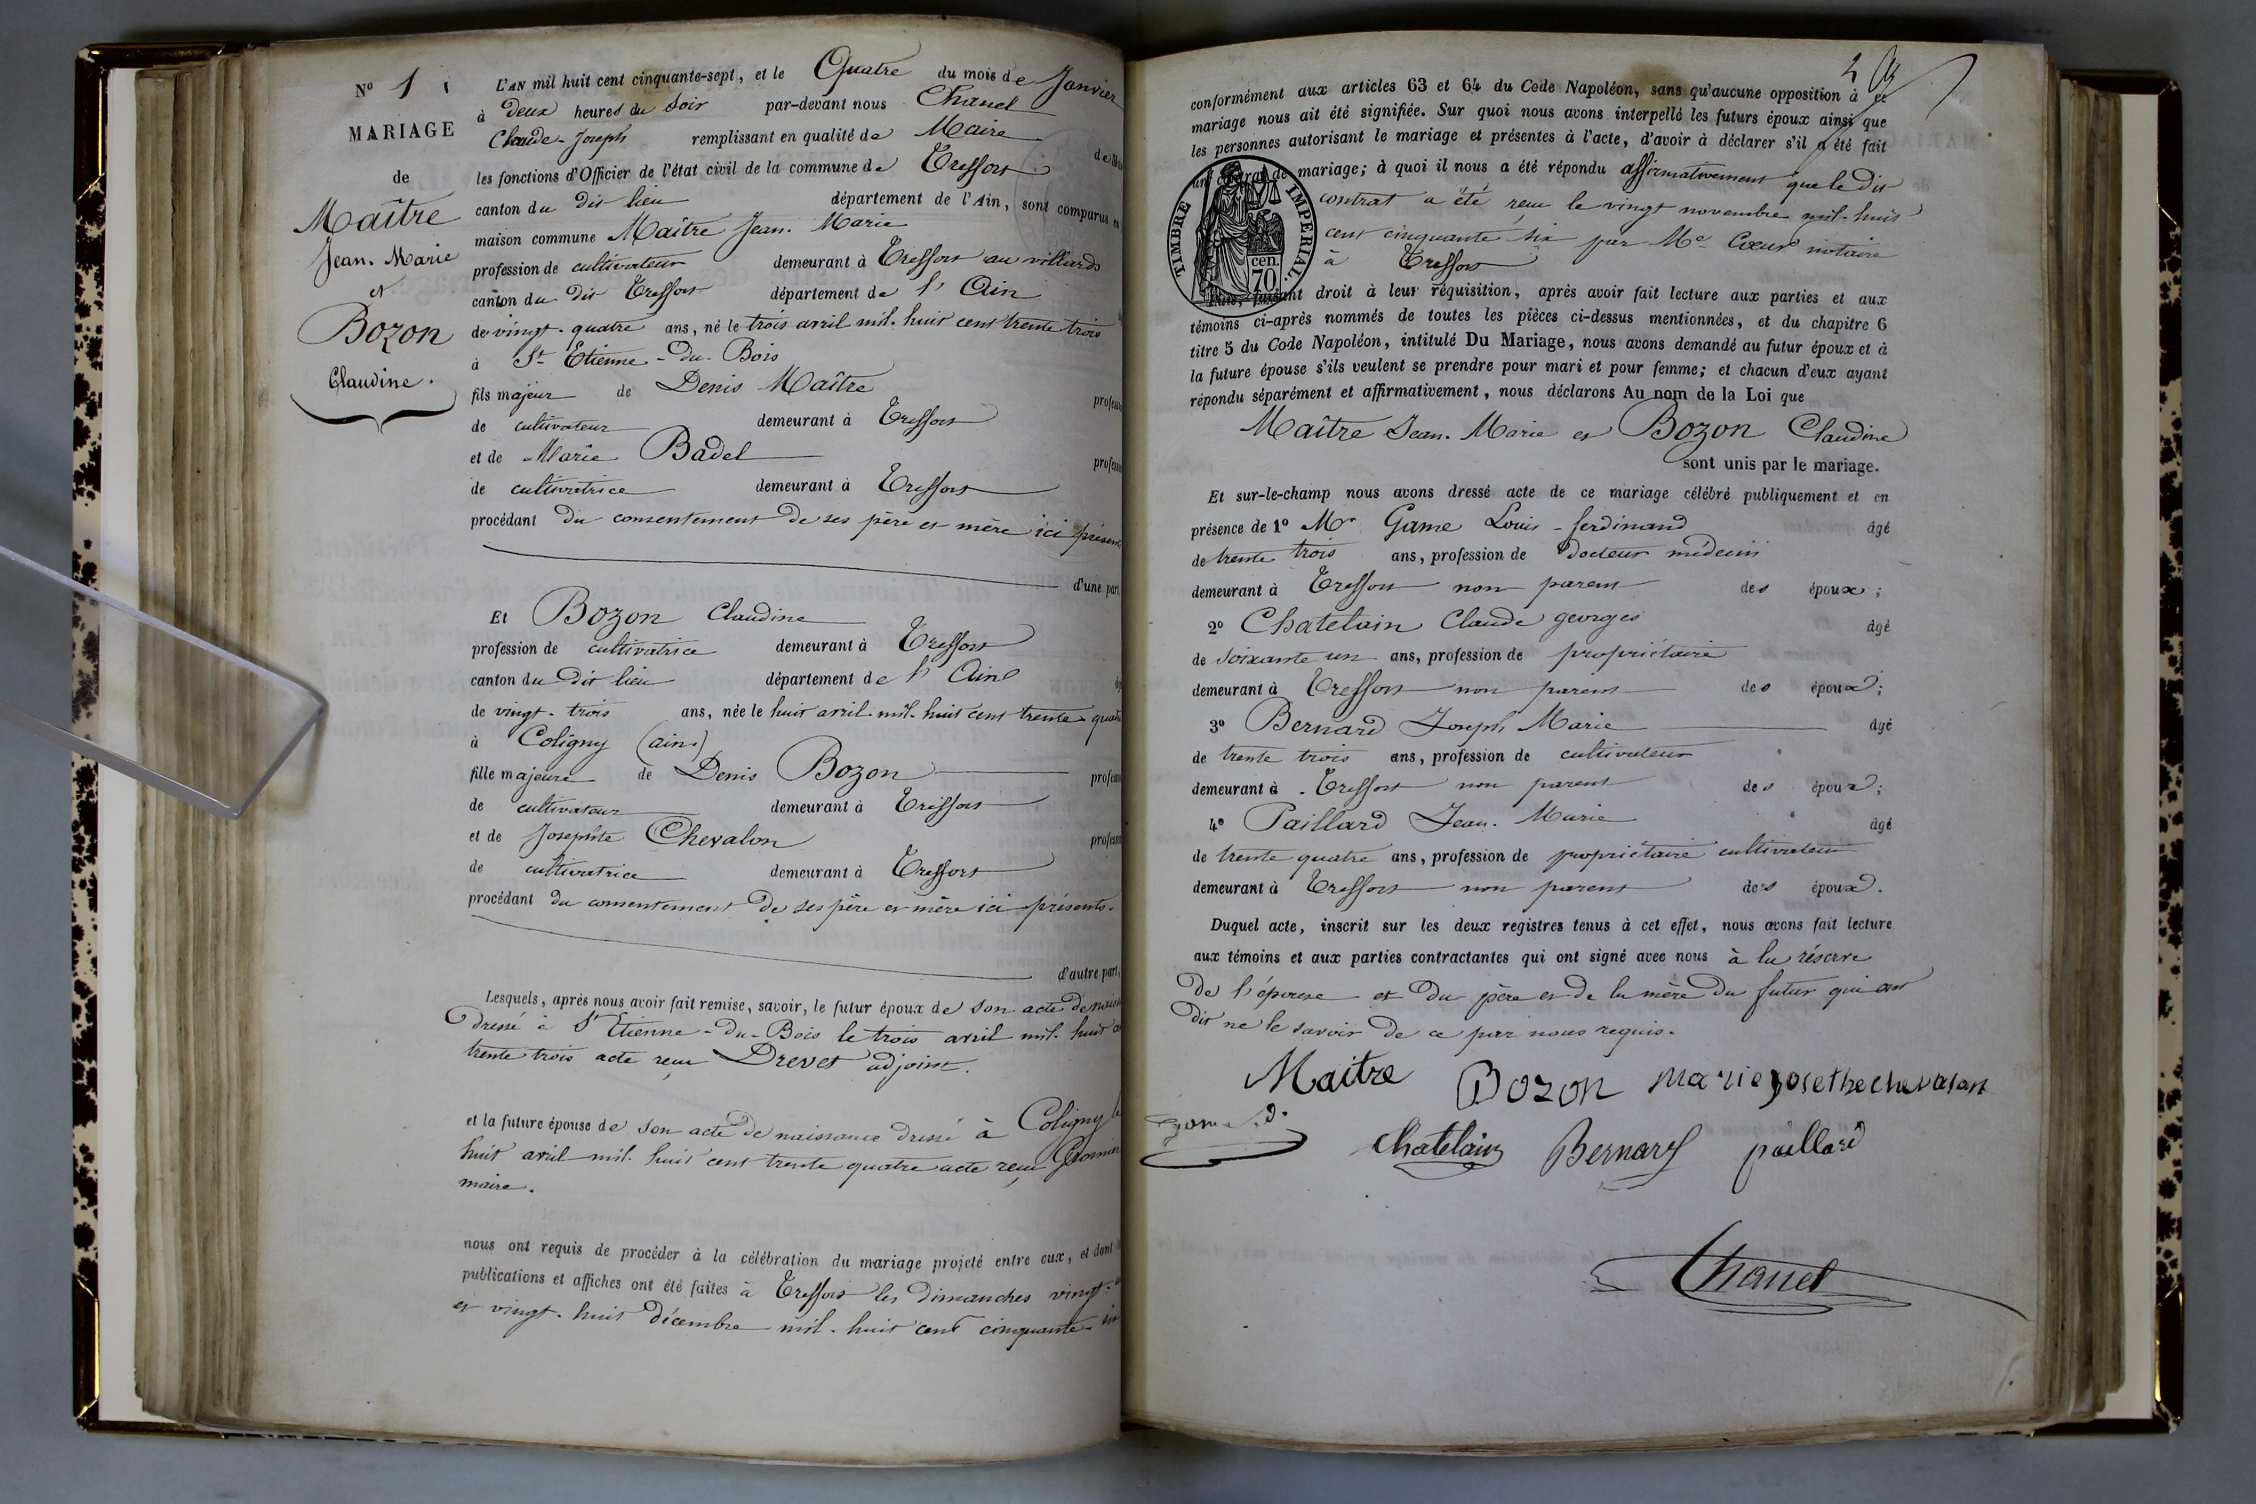 N° 1
MARIAGE
de
Maître
Jean. Marie
et
Bozon
Claudine.
L'AN mil huit cent cinquante-sept, et le Quatre du mois de Janvier
à deux heures du Soir par-devant nous Chanel
Claude-Joseph remplissant en qualité de Maire
les fonctions d'Officier de l'état civil de la commune de Treffort
canton du dit lieu département de l'Ain, sont comparus en
maison commune Maître Jean. Marie
profession de cultivateur demeurant à Treffort au villards
canton du dit Treffort département de l'Ain
de vingt-quatre ans, né le trois avril mil-huit cent trente trois
à St Etienne-du-Bois
fils majeur de Denis Maître
de cultivateur demeurant à Treffort
et de Marie Badel
de cultivatrice demeurant à Treffort
procédant du consentement de ses père et mère ici présents
d'une part
Et Bozon Claudine
profession de cultivatrice demeurant à Treffort
canton du dit lieu département de l'Ain
de vingt-trois ans, née le huit avril mil-huit cent trente-quatre
à Coligny (ain)
fille majeure de Denis Bozon
de cultivateur demeurant à Treffort
et de Josephte Chevalon
de cultivatrice demeurant à Treffort
procédant du consentement de ses père et mère ici présents.
d'autre part,
Lesquels, après nous avoir fait remise, savoir, le futur époux de son acte de
dressé à St Etienne-du-Bois le trois avril mil-huit
trente trois acte reçu Drevet adjoint.
et la future épouse de son acte de naissance dressé à Coligny le
huit avril mil-huit cent trente quatre acte reçu
maire.
nous ont requis de procéder à la célébration du mariage projeté entre eux, et dont
publications et affiches ont été faites à Treffort les dimanches vingt-
et vingt-huit décembre mil-huit cent cinquante-six
2
conformément aux articles 63 et 64 du Code Napoléon, sans qu'aucune opposition à ce
mariage nous ait été signifiée. Sur quoi nous avons interpellé les futurs époux ainsi que
les personnes autorisant le mariage et présentes à l'acte, d'avoir à déclarer s'il a été fait
un contrat de mariage; à quoi il nous a été répondu affirmativement que le dit
contrat a été reçu le vingt novembre mil-huit
cent cinquante six par Me Cœur notaire
à Treffort
TIMBRE IMPÉRIAL.
cen.
70.
faisant droit à leur réquisition, après avoir fait lecture aux parties et aux
témoins ci-après nommés de toutes les pièces ci-dessus mentionnées, et du chapitre 6
titre 5 du Code Napoléon, intitulé Du Mariage, nous avons demandé au futur époux et à
la future épouse s'ils veulent se prendre pour mari et pour femme; et chacun d'eux ayant
répondu séparément et affirmativement, nous déclarons Au nom de la Loi que
Maître Jean. Marie et Bozon Claudine
sont unis par le mariage.
Et sur-le-champ nous avons dressé acte de ce mariage célébré publiquement et en
présence de 1° Mr Game Louis-ferdinand âgé
de trente trois ans, profession de Docteur médecin
demeurant à Treffort non parent des époux;
2° Chatelain Claude georges âgé
de soixante un ans, profession de propriétaire
demeurant à Treffort non parent des époux;
3° Bernard Joseph Marie âgé
de trente trois ans, profession de cultivateur
demeurant à Treffort non parent des époux;
4° Paillard Jean. Marie âgé
de trente quatre ans, profession de propriétaire cultivateur
demeurant à Treffort non parent des époux.
Duquel acte, inscrit sur les deux registres tenus à cet effet, nous avons fait lecture
aux témoins et aux parties contractantes qui ont signé avec nous à la réserve
de l'épouse et du père et de la mère du futur qui ont
dit ne le savoir de ce par nous requis.
Maitre Bozon marie josethe chevalon
Chatelain Bernard paillard
Chanel